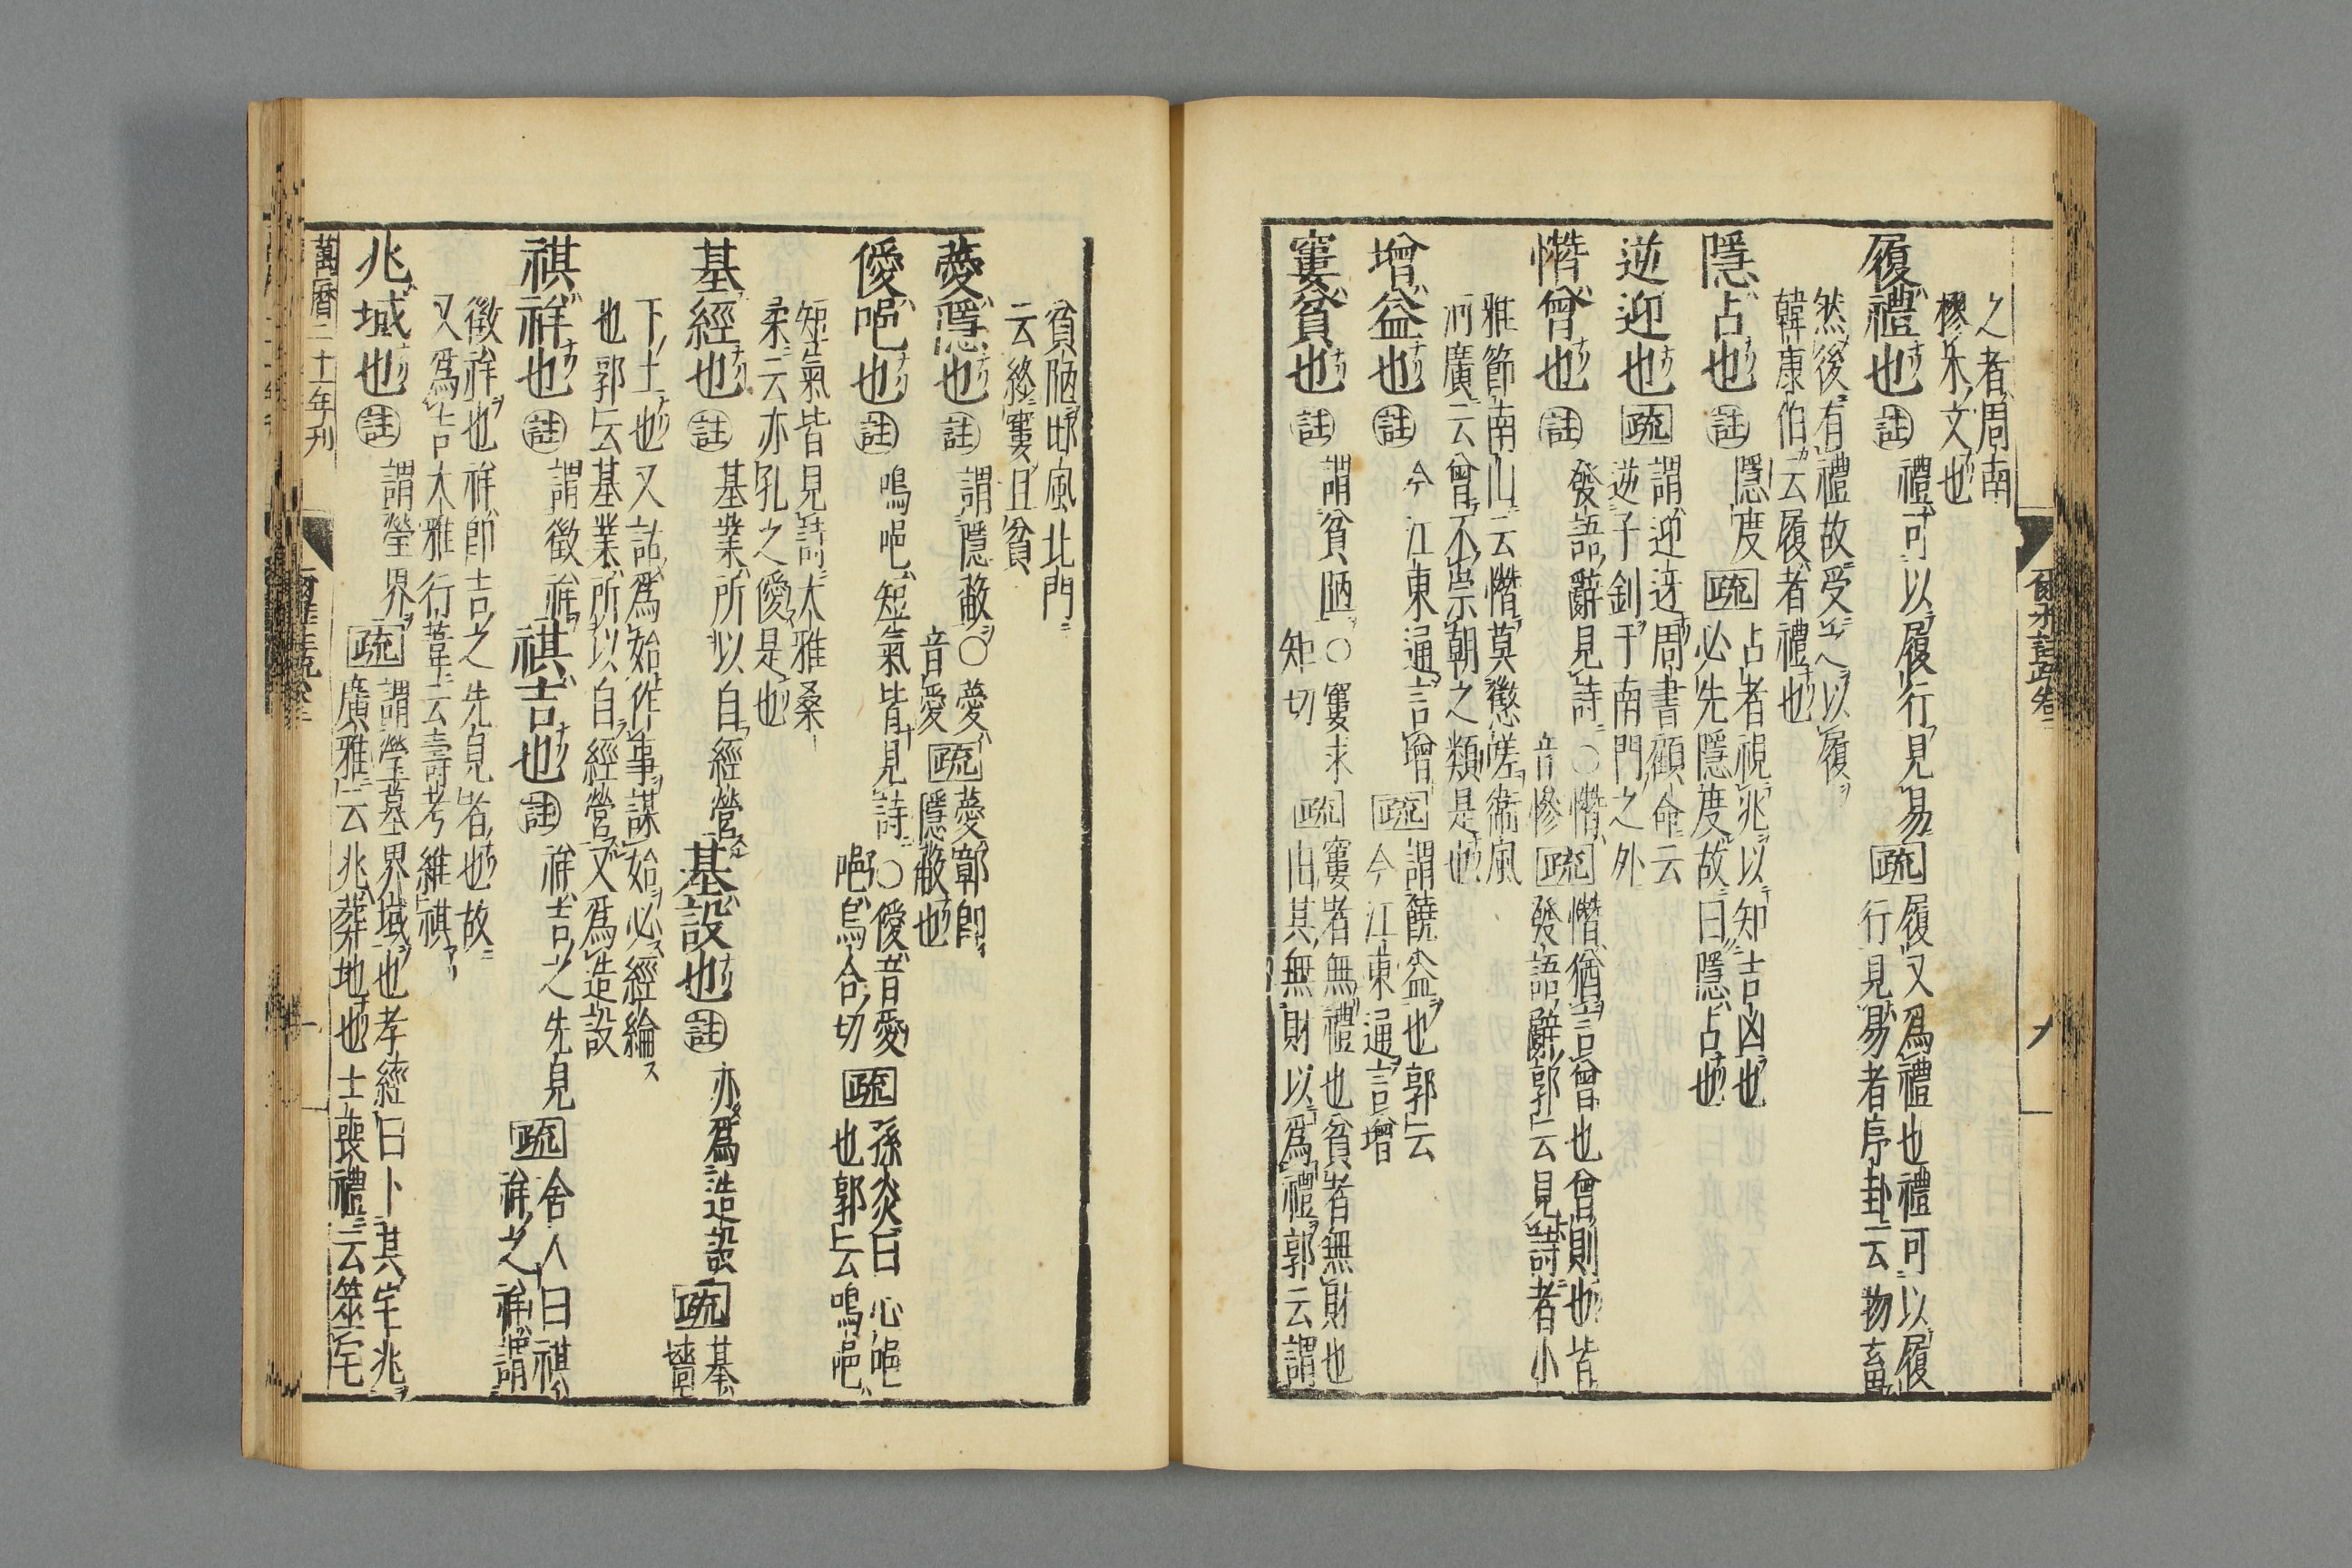 之者周南
樛木文也
履禮也註禮可以履行見易疏履又爲禮也禮可以履
行見易者序卦云物畜
然後有禮故受之以履
韓康伯云履者禮也
隱占也註隱度疏占者視兆以知吉凶也
必先隱度故曰隱占也
逆迎也疏謂迎迓周書顧命云
逆子釗于南門之外
憯曾也註發語辭見詩○憯音慘疏憯猶言曾也曾則也皆
發語辭郭云見詩者小
雅節南山云憯莫懲嗟衛風
河廣云曾不崇朝之類是也
增益也註今江東通言增疏謂饒益也郭云
今江東通言增
窶貧也註謂貧陋○窶求矩切疏窶者無禮也貧者無財也
由其無財以爲禮郭云謂
爾雅註疏卷二
貧陋邶風北門
云終窶且貧
薆隱也註謂隱蔽○薆音愛疏薆郭卽
隱蔽也
僾唈也註嗚唈短氣皆見詩○僾音愛唈烏合切疏孫炎曰心唈
也郭云嗚唈
短氣皆見詩大雅桑
柔云亦孔之僾是也
基經也註基業所以自經營基設也註亦爲造設疏基
墻
下土也又詁爲始作事謀始必經綸
也郭云基業所以自經營又爲造設
祺祥也註謂徵祥祺吉也註祥吉之先見疏舍人曰祺
祥之祥謂
徵祥也祥卽吉之先見者也故
又爲吉大雅行葦云壽考維祺
兆域也註謂塋界疏謂塋墓界域也孝經曰卜其宅兆
廣雅云兆葬地也士喪禮云筮宅
萬曆二十一年刊